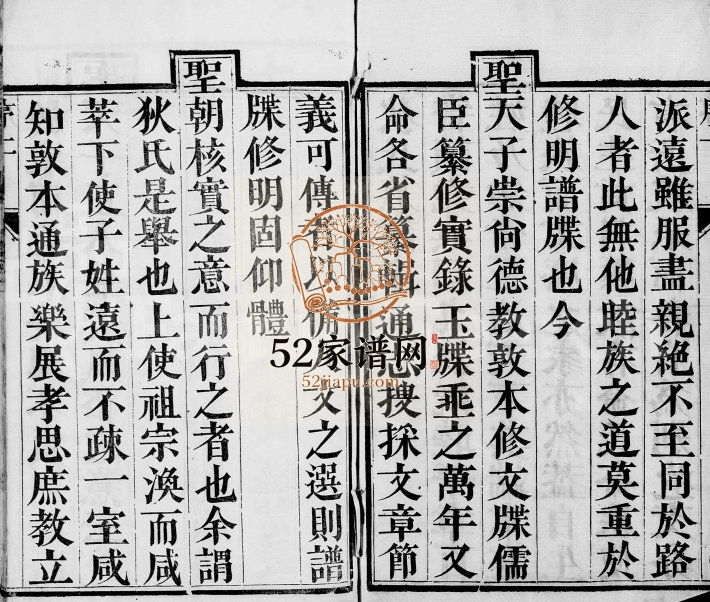 派遠雖服盡親絶不至同於路
人者此無他睦族之道莫重於
修明譜牒也今
聖天子崇尙德教敦本修文牒儒
臣纂修實錄玉牒垂之萬年又
命各省纂輯通志搜採文章節
義可傳者以備人文之選則譜
牒修明固仰體
聖朝核實之意而行之者也余謂
狄氏是舉也上使祖宗渙而咸
萃下使子姓遠而不疎一室咸
知敦本通族樂展孝思庶教立
52家谱网
52jiapu.com